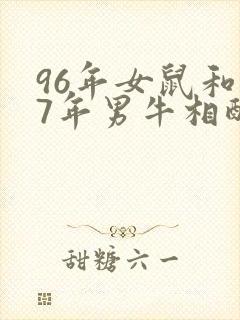 96年女鼠和
7年男牛相配
甜糖六一